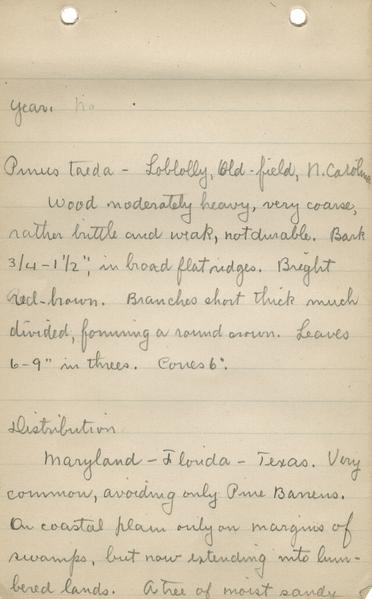 Year. No
Pinus taeda - Loblolly, Old-field, N. Carolina
Wood moderately heavy, very coarse,
rather brittle and weak, not durable. Bark
3/4 - 1 1/2", in broad flat ridges. Bright
red-brown. Branches short thick much
divided, forming a round crown. Leaves
6-9" in threes. Cones 6".
Distribution
Maryland - Florida - Texas. Very
common, avoiding only Pine Barrens.
On coastal plain only on margins of
swamps, but now extending into lum-
bered lands. A tree of moist sandy